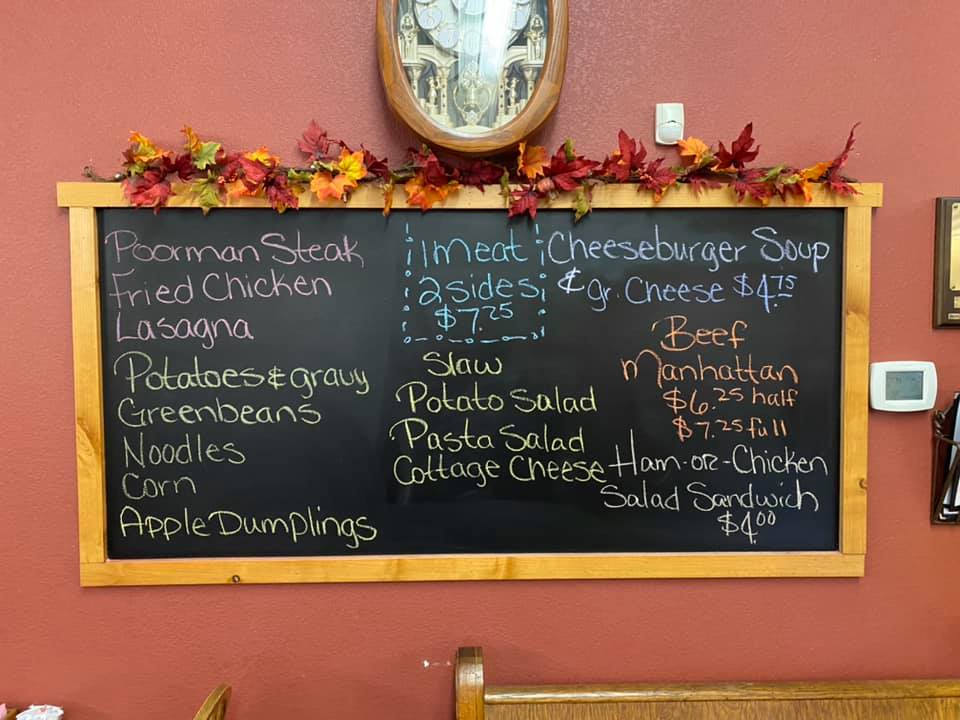 Poorman Steak
Fried Chicken
Lasagna
Potatoes & gravy
Greenbeans
Noodles
Corn
Apple Dumplings
1 Meat
2 sides
$7.25
Slaw
Potato Salad
Pasta Salad
Cottage Cheese
Cheeseburger Soup
& gr. Cheese $4.75
Beef
Manhattan
$6.25 half
$7.25 full
Ham-or-Chicken
Salad Sandwich
$4.00